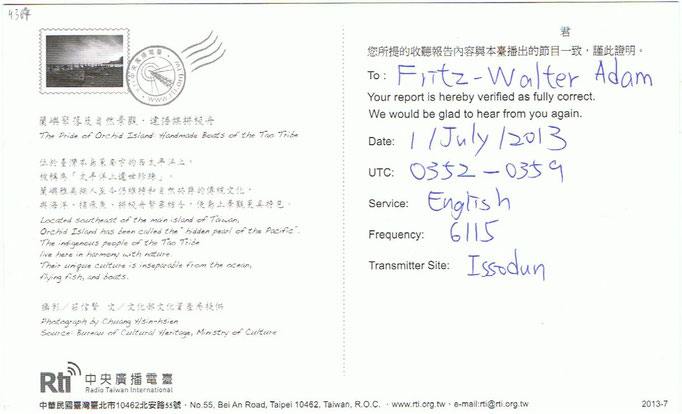 4364
中央廣播電臺
www.rti.org.tw
蘭嶼聚落及自然景觀，達悟族拼板舟
The Pride of Orchid Island: Handmade Boats of the Tao Tribe
位於臺灣本島東南方的西太平洋上，
被稱為「太平洋上遺世珍珠」。
蘭嶼雅美族人至今仍維持和自然共存的傳統文化，
與海洋、捕飛魚、拼板舟緊密結合，使島上景觀更具特色。
Located southeast of the main island of Taiwan,
Orchid Island has been called the "hidden pearl of the Pacific".
The indigenous people of the Tao Tribe
live here in harmony with nature.
Their unique culture is inseparable from the ocean,
flying fish, and boats.
攝影／莊信賢 文／文化部文化資產局提供
Photograph by Chuang Hsin-hsien
Source: Bureau of Cultural Heritage, Ministry of Culture
君
您所提的收聽報告內容與本臺播出的節目一致，謹此證明。
To : Fritz-Walter Adam
Your report is hereby verified as fully correct.
We would be glad to hear from you again.
Date: 1/July/2013
UTC: 0352-0359
Service: English
Frequency: 6115
Transmitter Site: Issodun
Rti 中央廣播電臺
Radio Taiwan International
中華民國臺灣臺北市10462北安路55號・No.55, Bei An Road, Taipei 10462, Taiwan, R.O.C. ・www.rti.org.tw ・e-mail:rti@rti.org.tw
2013-7